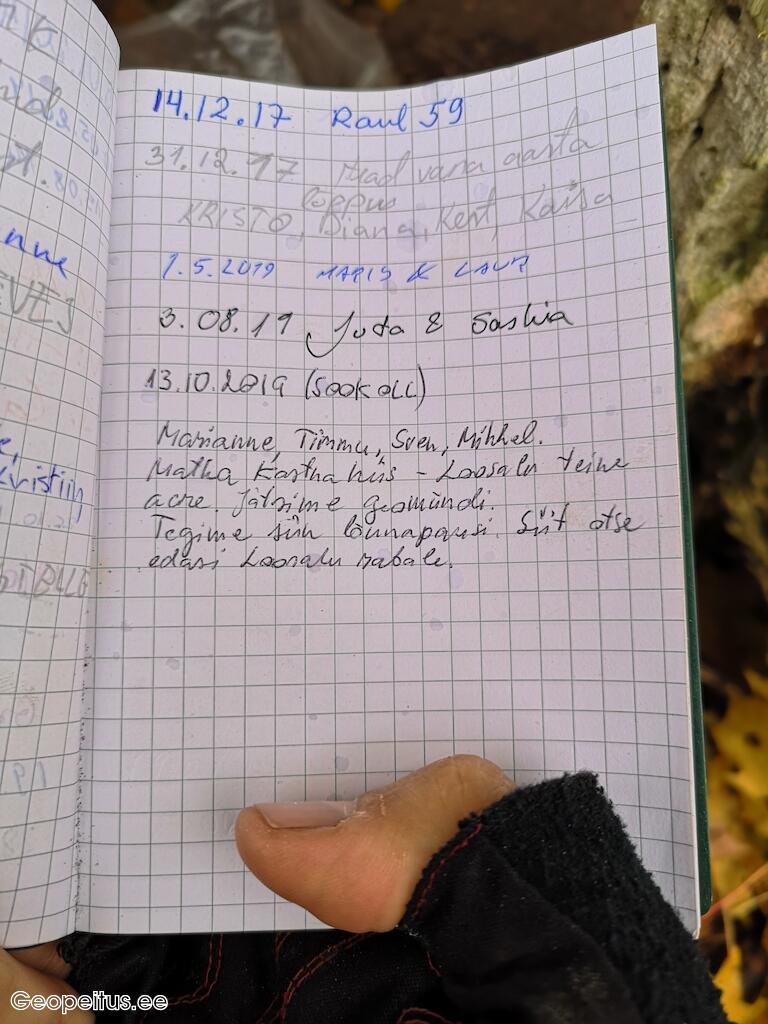 14.12.17 Raul 59
31.12.17 Head vana aasta
lõppu
KRISTO, Diana, Kert, Kaisa
1.5.2019 MARIS & LAUR
3.08.19 Juta & Saskia
13.10.2019 (SOOKOLL)
Marianne, Timmu, Sven, Mihkel.
Matka - Loosalu teine
Jätsime geomündi.
Tegime siin lõunapausi. Siit otse
edasi Loosalu rabale.
nne
Kristiin
Geopeitus.ee